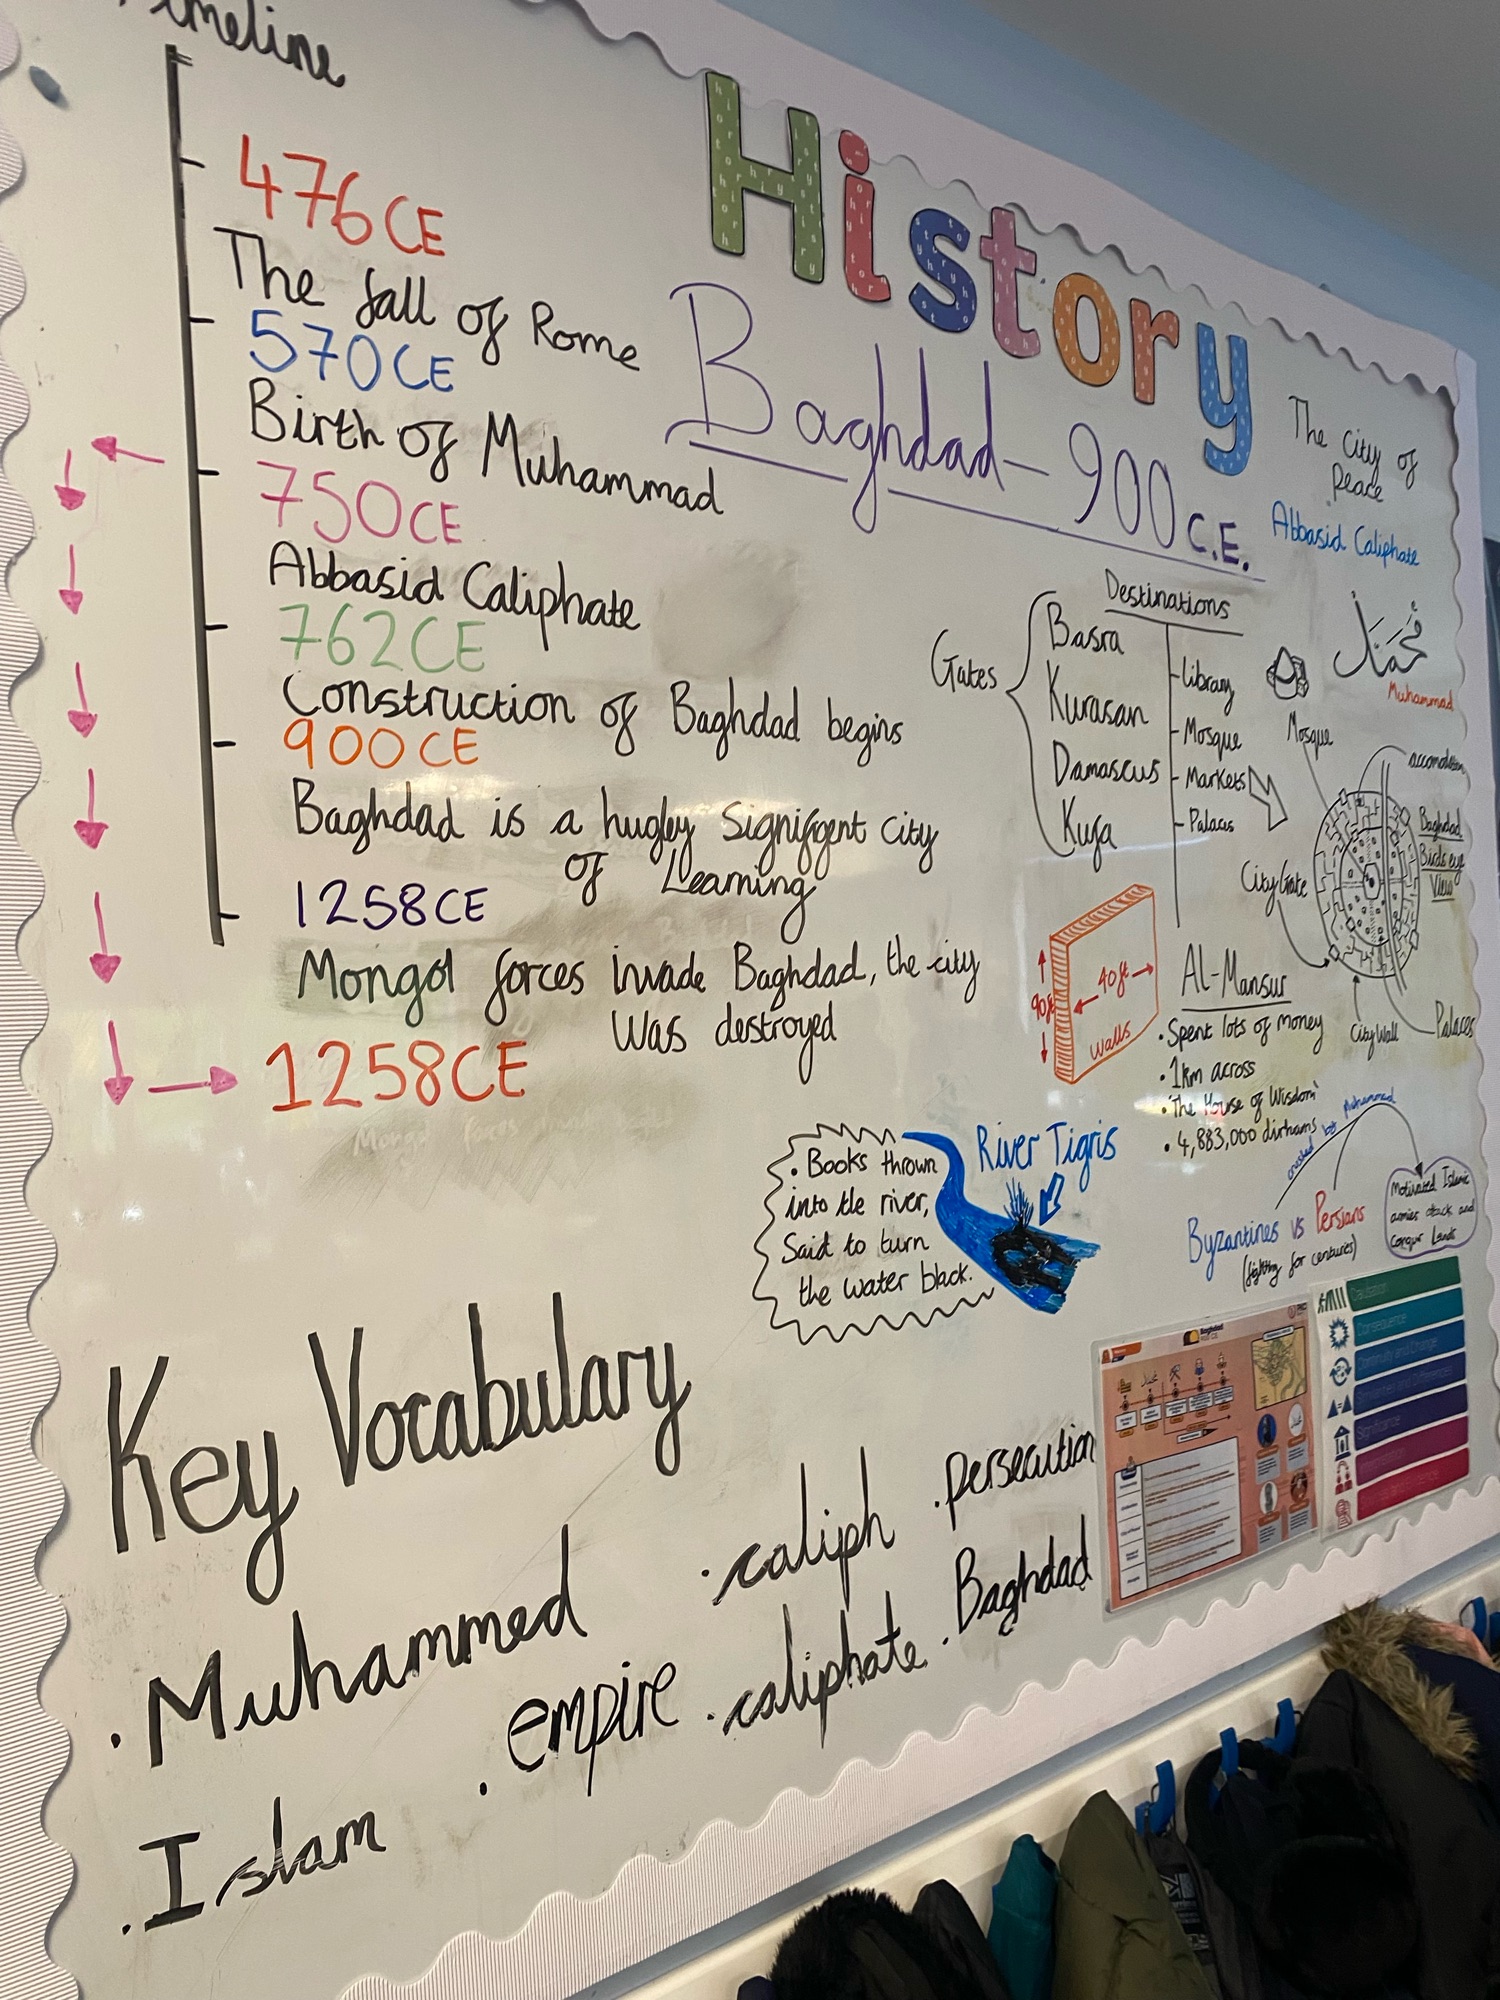 Timeline
476CE
The fall of Rome
570CE
Birth of Muhammad
750CE
Abbasid Caliphate
762CE
Construction of Baghdad begins
900CE
Baghdad is a hugley
city
of Learning
1258CE
Mongol forces invade Baghdad, the city
was destroyed
1258CE
History
Baghdad - 900 C.E.
The City of
Peace
Abbasid Caliphate
Gates
Basra
Kurasan
Damascus
Kufa
Destinations
Library
Mosque
Markets
Palaces
محمد
Muhammad
Mosque
Baghdad
Birds eye
View
City Gate
City Wall
Palaces
90ft
40ft
walls
Al-Mansur
• Spent lots of money
• 1km across
• 'The House of Wisdom'
• 4,883,000 dirhams
River Tigris
• Books thrown
into the river,
Said to turn
the water black.
crushed by Muhammad
Byzantines vs Persians
(fighting for centuries)
Motivated Islamic
armies attack and
Conqur Lands
Key Vocabulary
• Muhammed
• Islam
• empire
• caliph
• caliphate
• persecution
• Baghdad
Baghdad
Causation
Consequence
Continuity and Change
Significance